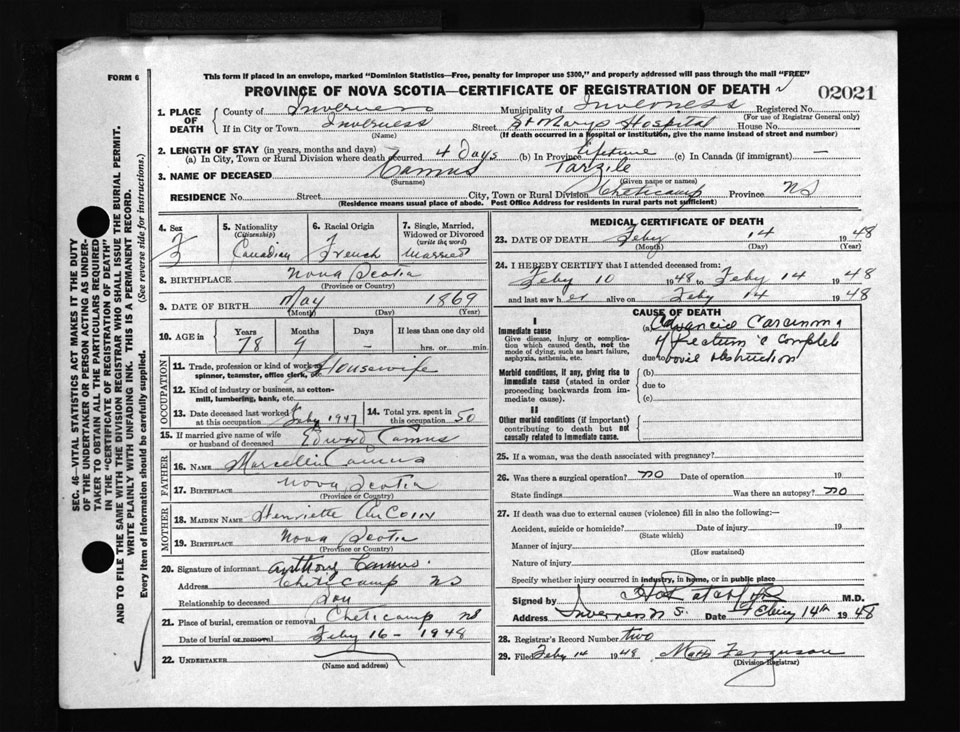 FORM 6
This form if placed in an envelope, marked "Dominion Statistics—Free, penalty for improper use $300," and properly addressed will pass through the mail "FREE"
PROVINCE OF NOVA SCOTIA—CERTIFICATE OF REGISTRATION OF DEATH
02021
1. PLACE OF DEATH
County of Inverness Municipality of Inverness Registered No.
(For use of Registrar General only)
If in City or Town Inverness Street St Marys Hospital House No.
(Name) (If death occurred in a hospital or institution, give the name instead of street and number)
2. LENGTH OF STAY (in years, months and days)
(a) In City, Town or Rural Division where death occurred 4 days (b) In Province Lifetime (c) In Canada (if immigrant) —
3. NAME OF DECEASED Camus Tarzile
(Surname) (Given name or names)
RESIDENCE No. Street City, Town or Rural Division Cheticamp Province NS
(Residence means usual place of abode. Post Office Address for residents in rural parts not sufficient)
4. Sex F
5. Nationality (Citizenship) Canadian
6. Racial Origin French
7. Single, Married, Widowed or Divorced (write the word) Married
8. BIRTHPLACE Nova Scotia
(Province or Country)
9. DATE OF BIRTH May 1869
(Month) (Day) (Year)
10. AGE in Years Months Days If less than one day old
78 9 – hrs. or min.
OCCUPATION
11. Trade, profession or kind of work as spinner, teamster, office clerk, etc. Housewife
12. Kind of industry or business, as cotton-mill, lumbering, bank, etc.
13. Date deceased last worked at this occupation Feby 1947
14. Total yrs. spent in this occupation 50
15. If married give name of wife or husband of deceased Edward Camus
FATHER
16. NAME Marcellin Camus
17. BIRTHPLACE Nova Scotia
(Province or Country)
MOTHER
18. MAIDEN NAME Henriette AuCoin
19. BIRTHPLACE Nova Scotia
(Province or Country)
20. Signature of informant Anthony Camus
Address Cheticamp NS
Relationship to deceased Son
21. Place of burial, cremation or removal Cheticamp NS
Date of burial or removal Feby 16 – 1948
22. UNDERTAKER
(Name and address)
MEDICAL CERTIFICATE OF DEATH
23. DATE OF DEATH Feby 14 1948
(Month) (Day) (Year)
24. I HEREBY CERTIFY that I attended deceased from:
Feby 10 1948 to Feby 14 1948
and last saw her alive on Feby 14 1948
CAUSE OF DEATH
I
Immediate cause
Give disease, injury or complication which caused death, not the mode of dying, such as heart failure, asphyxia, asthenia, etc.
(a) Advanced Carcinoma
of rectum c complete
due to bowel obstruction
Morbid conditions, if any, giving rise to immediate cause (stated in order proceeding backwards from immediate cause).
(b)
due to
(c)
II
Other morbid conditions (if important) contributing to death but not causally related to immediate cause.
25. If a woman, was the death associated with pregnancy?
26. Was there a surgical operation? no Date of operation 19
State findings Was there an autopsy? no
27. If death was due to external causes (violence) fill in also the following:—
Accident, suicide or homicide? Date of injury 19
(State which)
Manner of injury
(How sustained)
Nature of injury
Specify whether injury occurred in industry, in home, or in public place
Signed by M.D.
Address Inverness N S. Date Febury 14th 1948
28. Registrar's Record Number two
29. Filed Feby 14 1948 Ferguson
(Division Registrar)
SEC. 46—VITAL STATISTICS ACT MAKES IT THE DUTY
OF THE UNDERTAKER OR PERSON ACTING AS UNDER-
TAKER TO OBTAIN ALL THE PARTICULARS REQUIRED
IN THE "CERTIFICATE OF REGISTRATION OF DEATH"
AND TO FILE THE SAME WITH THE DIVISION REGISTRAR WHO SHALL ISSUE THE BURIAL PERMIT.
WRITE PLAINLY WITH UNFADING INK. THIS IS A PERMANENT RECORD.
Every item of information should be carefully supplied. (See reverse side for instructions.)